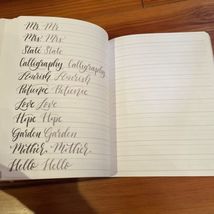 Mr. Mr.
Mrs. Mrs.
State State
Calligraphy Calligraphy
Flourish Flourish
Patience Patience
Love Love
Hope Hope
Garden Garden
Mother Mother
Hello Hello